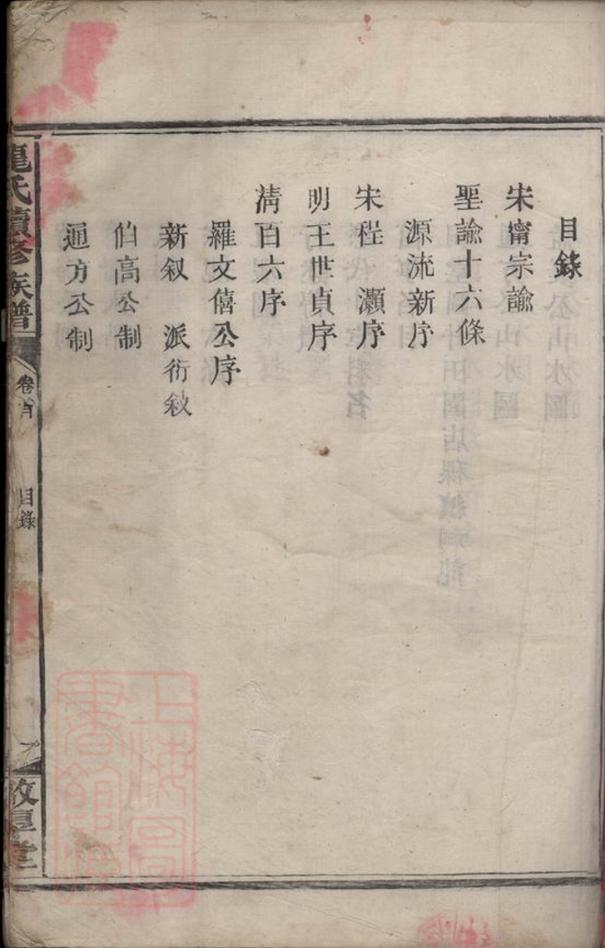 目錄
宋甯宗諭
聖諭十六條
源流新序
宋程　灝序
明王世貞序
清百六序
羅文僖公序
新叙　派衍敍
伯高公制
通方公制
氏續修族譜
卷首
目錄
堂
上海圖書館藏